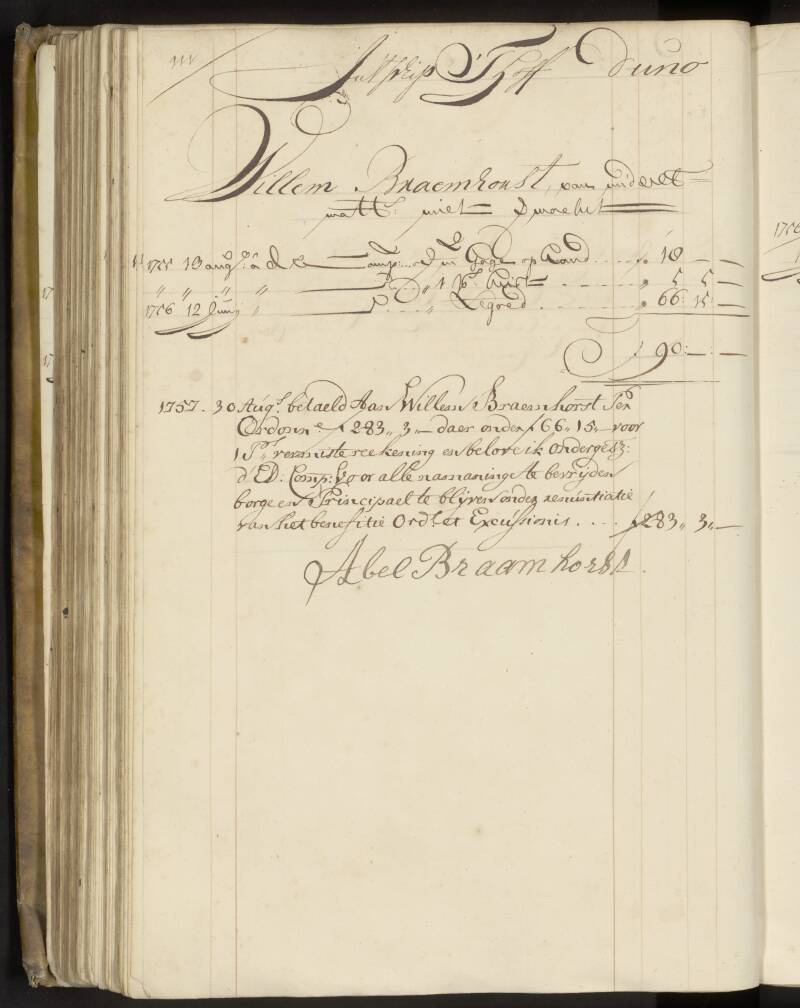 Int schip 'T Hoff Duno
Willem Braemhorst, van
matt:
1755 13 augs: a d E Comp: in gage op hand . . . . 18 — —
„ „ „ „ 1 ps: kist . . . . . 5 5 —
1756 12 Juny „ . . . „ Legced . . . . . . 66: 15: —
ƒ 90: — : —
1757 - 30 Augs: betaeld Aan Willem Braemhorst Per
Ordonne ƒ 283„ 3„ — daer onder ƒ 66„ 15„ — voor
1 Ps: vermiste reekening en belove ik ondergesz:
d' ED: Comp: voor alle namaninge te bevrijden
borge en Principael te blijven onder renuntiatie
van het benefitie Ords: et Excussionis . . . . ƒ 283„ 3„ —
Abel Braamhorst